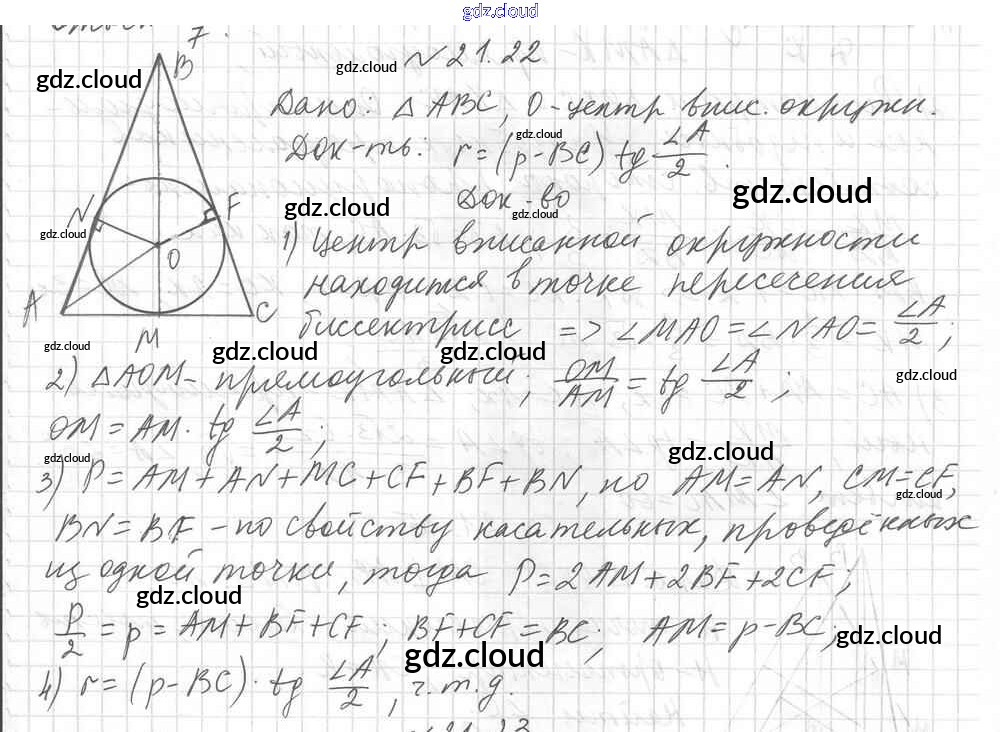 gdz.cloud
7.
№ 21.22
gdz.cloud
gdz.cloud
B
Дано: △ ABC, O - центр впис. окружн.
gdz.cloud
Док-ть: r = (p - BC) tg ∠A/2.
gdz.cloud
Док-во
gdz.cloud
gdz.cloud
N
F
gdz.cloud
O
A
C
M
1) Центр вписанной окружности
находится в точке пересечения
биссектрисс => ∠MAO = ∠NAO = ∠A/2;
gdz.cloud
gdz.cloud
gdz.cloud
2) △AOM - прямоугольный; OM/AM = tg ∠A/2;
OM = AM · tg ∠A/2;
gdz.cloud
gdz.cloud
3) P = AM + AN + MC + CF + BF + BN, но AM = AN, CM = CF,
gdz.cloud
BN = BF - по свойству касательных, проведённых
из одной точки, тогда P = 2AM + 2BF + 2CF;
gdz.cloud
P/2 = p = AM + BF + CF; BF + CF = BC; AM = p - BC;
gdz.cloud
gdz.cloud
4) r = (p - BC) · tg ∠A/2, ч.т.д.